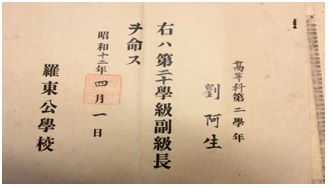 高等科第二學年
劉阿生
右ハ第二十學級副級長
ヲ命ス
昭和十二年四月一日
羅東公學校